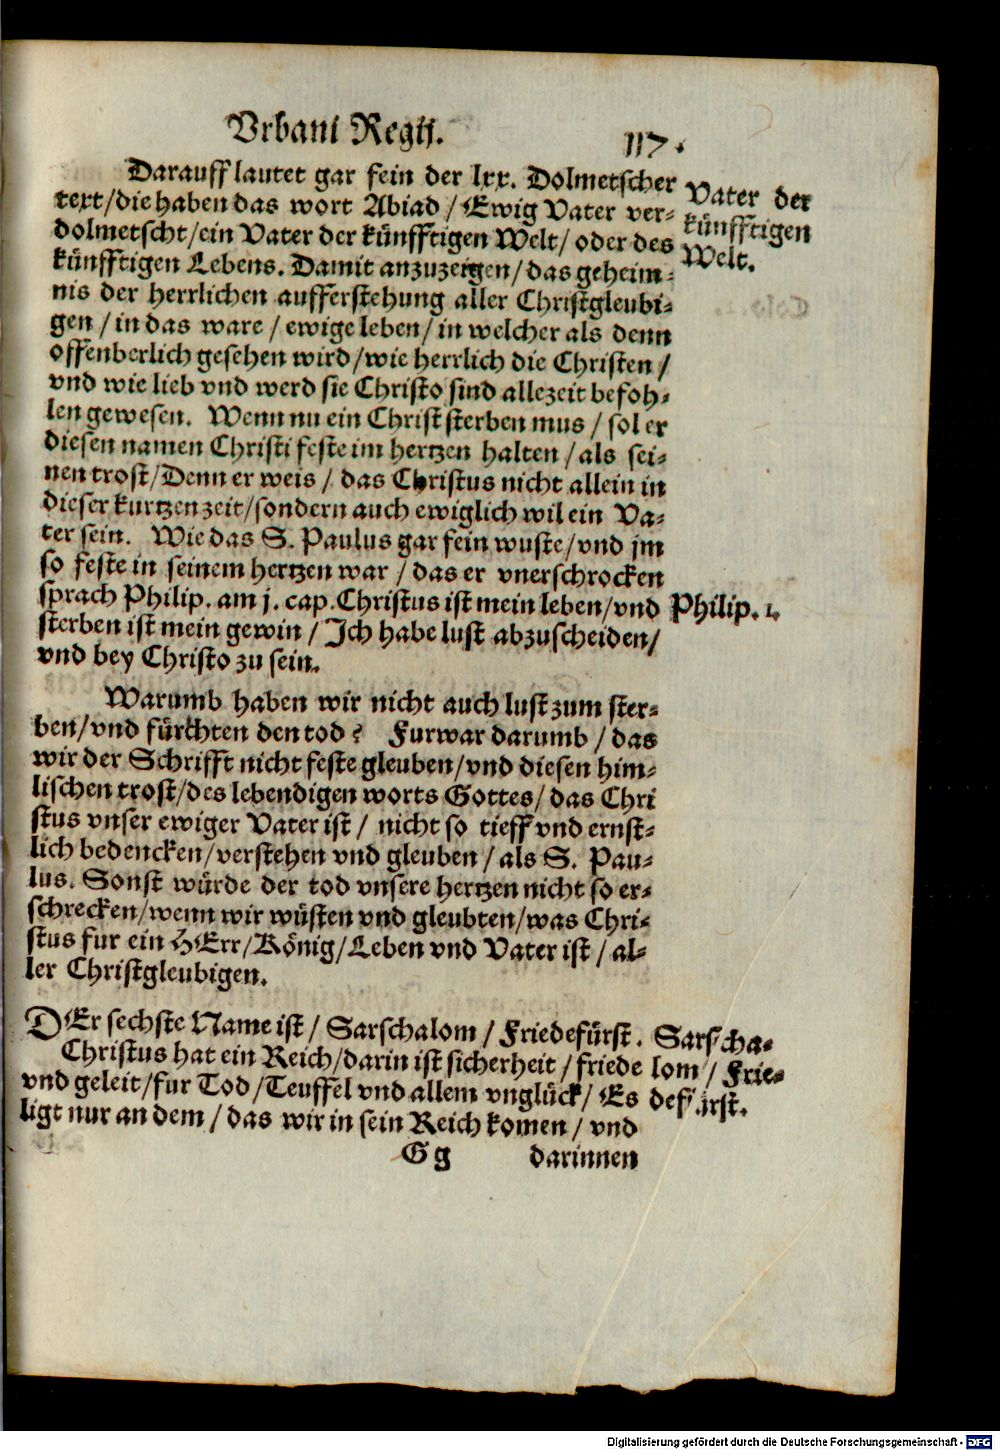 Vrbani Regij.
117.
Darauff lautet gar fein der lxx. Dolmetscher
text/die haben das wort Abiad/Ewig Vater ver-
dolmetscht/ein Vater der künfftigen Welt/oder des
künfftigen Lebens. Damit anzuzeigen/das geheim-
nis der herrlichen aufferstehung aller Christgleubi-
gen/in das ware/ewige leben/in welcher als denn
offenberlich gesehen wird/wie herrlich die Christen/
vnd wie lieb vnd werd sie Christo sind allezeit befoh-
len gewesen. Wenn nu ein Christ sterben mus/sol er
diesen namen Christi feste im hertzen halten/als sei-
nen trost/Denn er weis/das Christus nicht allein in
dieser kurtzen zeit/sondern auch ewiglich wil ein Va-
ter sein. Wie das S. Paulus gar fein wuste/vnd jm
so feste in seinem hertzen war/das er vnerschrocken
sprach Philip. am j. cap. Christus ist mein leben/vnd
sterben ist mein gewin/Ich habe lust abzuscheiden/
vnd bey Christo zu sein.
Vater der
künfftigen
Welt.
Philip. 1.
Warumb haben wir nicht auch lust zum ster-
ben/vnd fürchten den tod? Furwar darumb/das
wir der Schrifft nicht feste gleuben/vnd diesen him-
lischen trost/des lebendigen worts Gottes/das Chri
stus vnser ewiger Vater ist/nicht so tieff vnd ernst-
lich bedencken/verstehen vnd gleuben/als S. Pau-
lus. Sonst würde der tod vnsere hertzen nicht so er-
schrecken/wenn wir wüsten vnd gleubten/was Chri-
stus fur ein HErr/König/Leben vnd Vater ist/al-
ler Christgleubigen.
DEr sechste Name ist/Sarschalom/Friedefürst.
Christus hat ein Reich/darin ist sicherheit/friede
vnd geleit/fur Tod/Teuffel vnd allem vnglück/Es
ligt nur an dem/das wir in sein Reich komen/vnd
Sarscha-
lom/Frie-
defürst.
Gg
darinnen
Digitalisierung gefördert durch die Deutsche Forschungsgemeinschaft - DFG